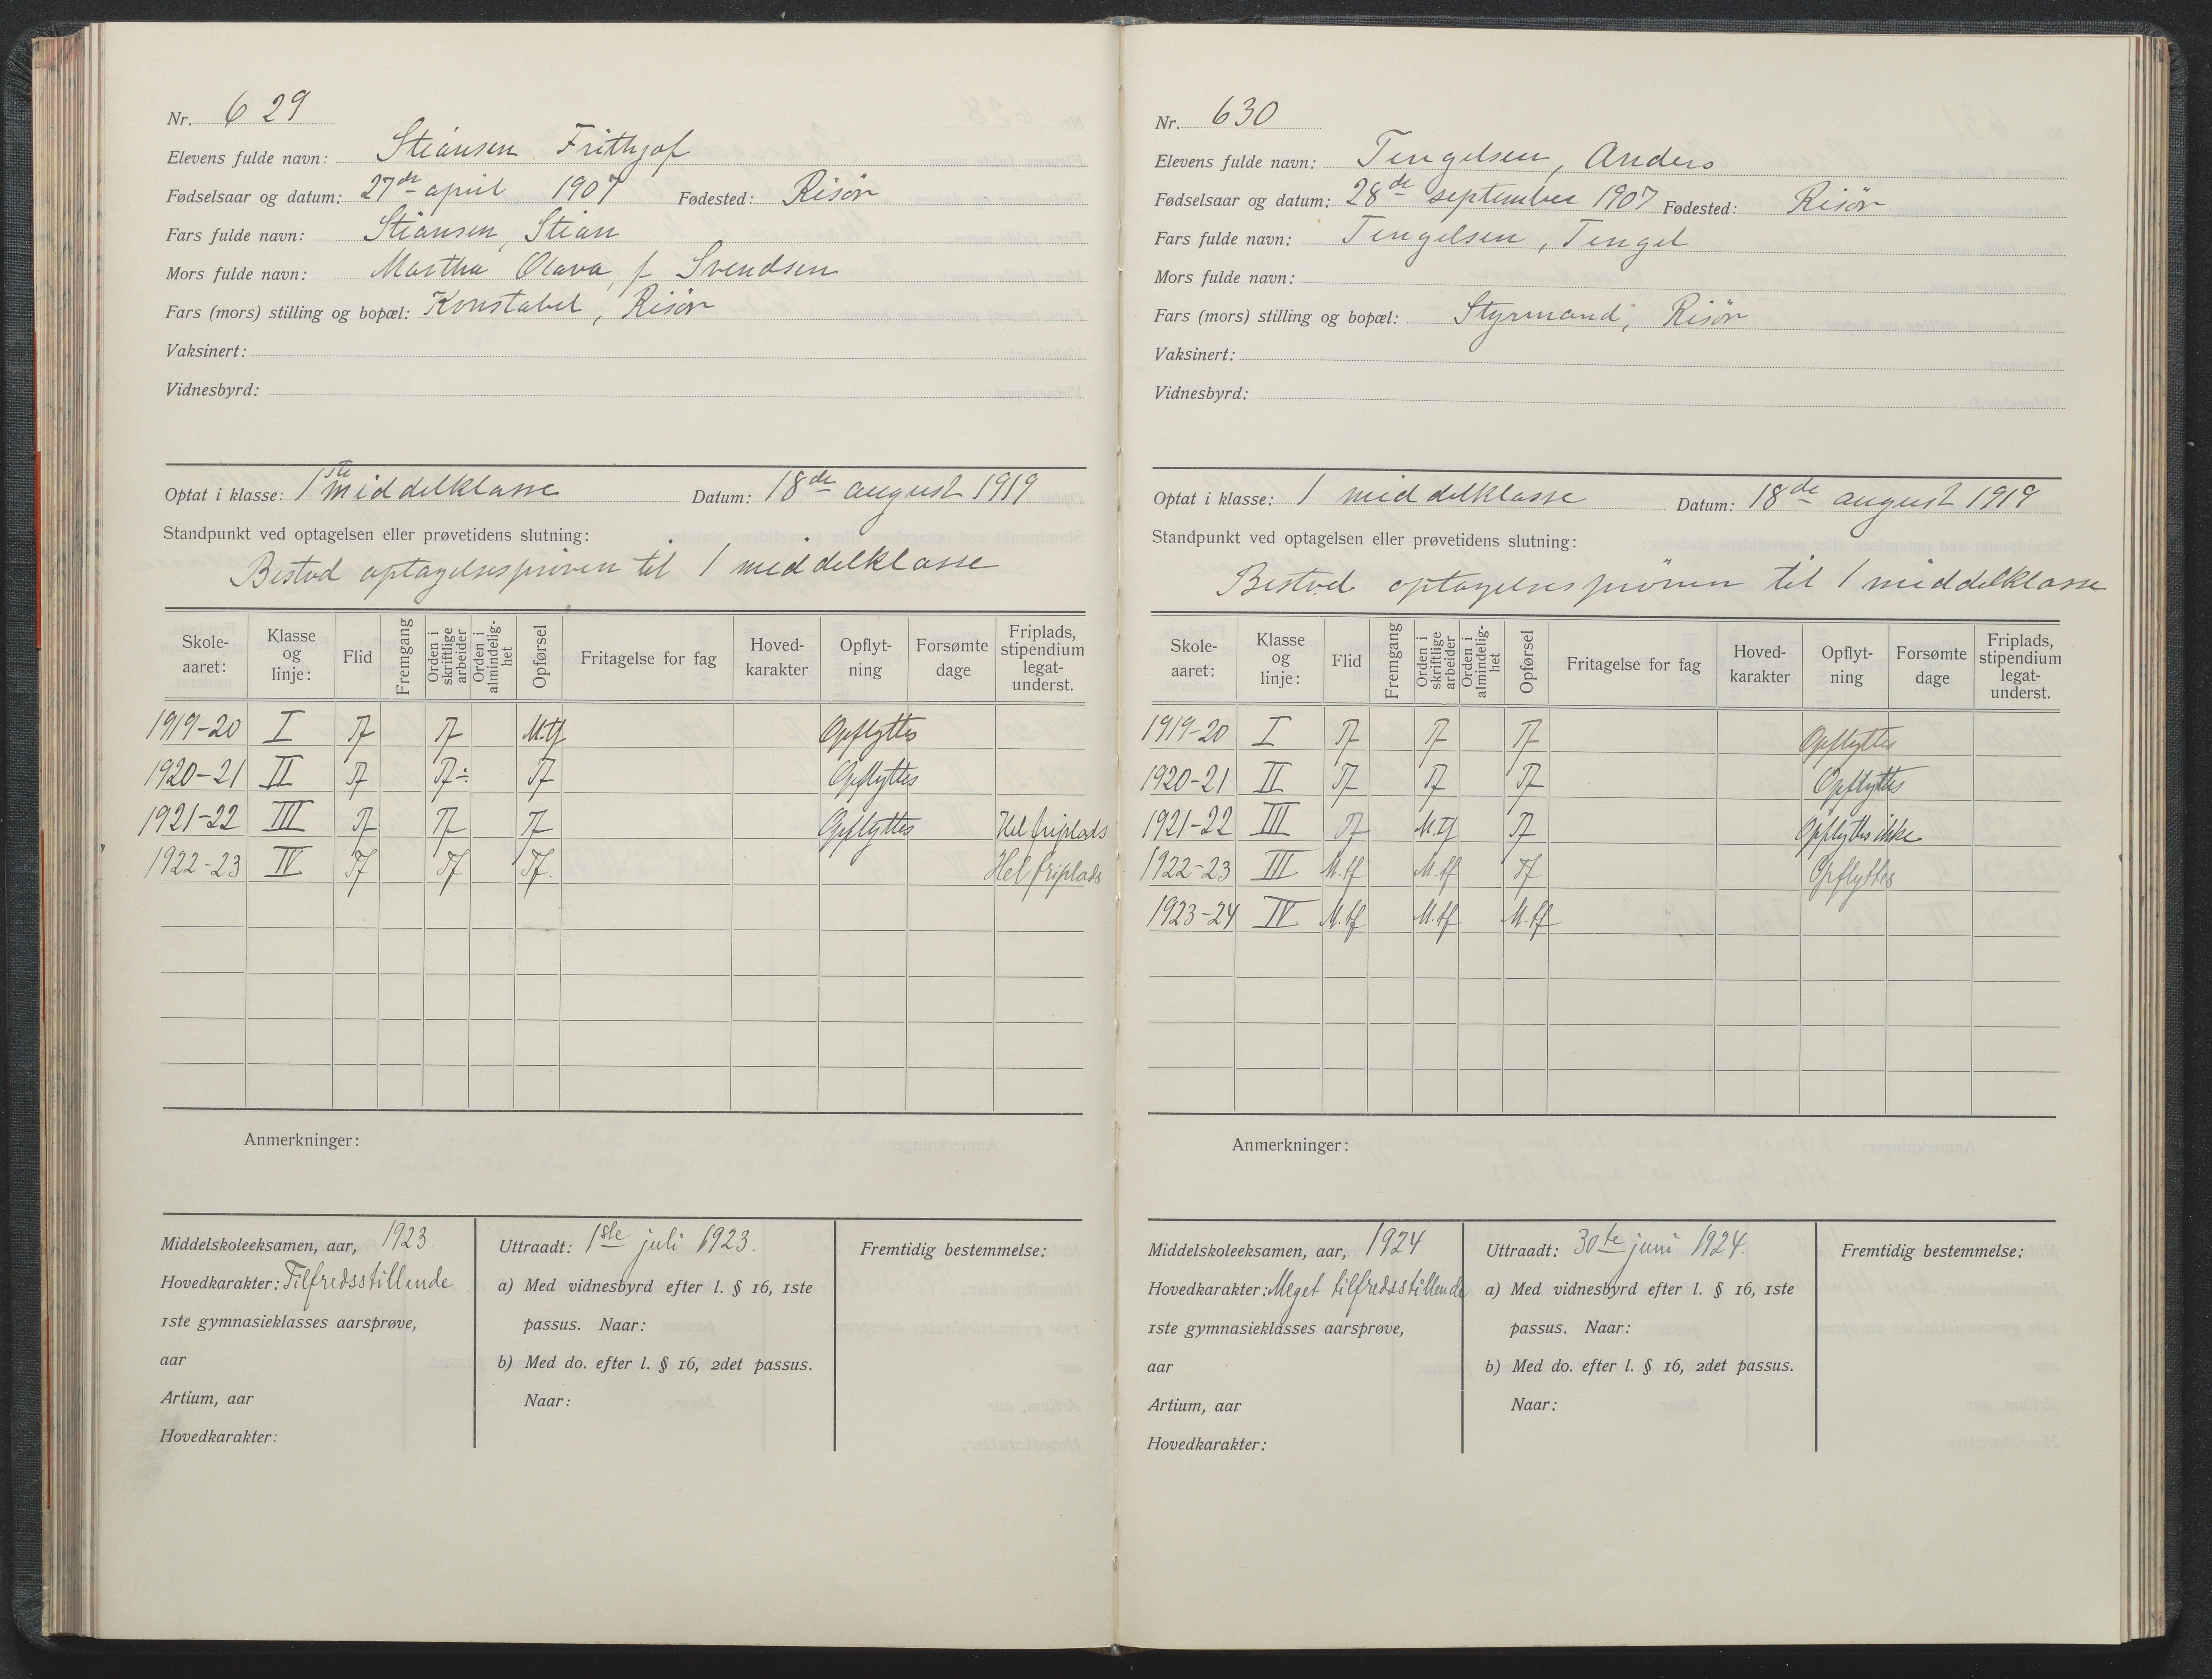 Nr. 629
Elevens fulde navn: Stiansen Frithjof
Fødselsaar og datum: 27de april 1907 Fødested: Risör
Fars fulde navn: Stiansen, Stian
Mors fulde navn: Martha Olava, f Svendsen
Fars (mors) stilling og bopæl: Konstabel, Risör
Vaksinert:
Vidnesbyrd:
Optat i klasse: 1ste middelklasse Datum: 18de august 1919
Standpunkt ved optagelsen eller prøvetidens slutning:
Bestod optagelsespröven til 1 middelklasse
Skole-aaret: Klasse og linje: Flid Fremgang Orden i skriftlige arbeider Orden i almindelig-het Opførsel Fritagelse for fag Hoved-karakter Opflyt-ning Forsømte dage Friplads, stipendium legat-underst.
1919-20 I Tf Tf M.tf Opflyttes
1920-21 II Tf Tf÷ Tf Opflyttes
1921-22 III Tf Tf Tf Opflyttes Hel friplads
1922-23 IV Tf Tf Tf. Hel friplads
Anmerkninger:
Middelskoleeksamen, aar, 1923.
Hovedkarakter: Tilfredsstillende
1ste gymnasieklasses aarsprøve,
aar
Artium, aar
Hovedkarakter:
Uttraadt: 1ste juli 1923.
a) Med vidnesbyrd efter l. § 16, 1ste
passus. Naar:
b) Med do. efter l. § 16, 2det passus.
Naar:
Fremtidig bestemmelse:
Nr. 630
Elevens fulde navn: Tengelsen, Anders
Fødselsaar og datum: 28de september 1907 Fødested: Risör
Fars fulde navn: Tengelsen, Tengel
Mors fulde navn:
Fars (mors) stilling og bopæl: Styrmand, Risör
Vaksinert:
Vidnesbyrd:
Optat i klasse: 1 middelklasse Datum: 18de august 1919
Standpunkt ved optagelsen eller prøvetidens slutning:
Bestod optagelsespröven til 1 middelklasse
Skole-aaret: Klasse og linje: Flid Fremgang Orden i skriftlige arbeider Orden i almindelig-het Opførsel Fritagelse for fag Hoved-karakter Opflyt-ning Forsømte dage Friplads, stipendium legat-underst.
1919-20 I Tf Tf Tf Opflyttes
1920-21 II Tf Tf Tf Opflyttes
1921-22 III Tf M.tf Tf Opflyttes ikke
1922-23 III M.tf M.tf Tf Opflyttes
1923-24 IV M.tf M.tf M.tf
Anmerkninger:
Middelskoleeksamen, aar, 1924
Hovedkarakter: Meget tilfredsstillende
1ste gymnasieklasses aarsprøve,
aar
Artium, aar
Hovedkarakter:
Uttraadt: 30te juni 1924.
a) Med vidnesbyrd efter l. § 16, 1ste
passus. Naar:
b) Med do. efter l. § 16, 2det passus.
Naar:
Fremtidig bestemmelse: